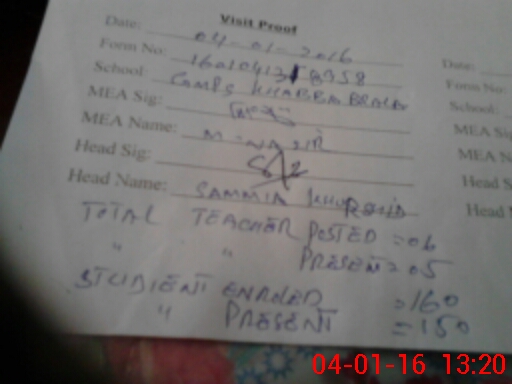 Visit Proof
Date: 04-01-2016
Form No: 16010413 8358
School: GMPS KHABBA BRALA
MEA Sig:
MEA Name: M-NASIR
Head Sig:
Head Name: SAMMIA KHURSHID
TOTAL TEACHER POSTED = 06
" " PRESENT = 05
STUDIENT ENROLED = 160
" PRESENT = 150
Date:
Form No:
School:
MEA Sig
MEA N
Head S
Head
04-01-16 13:20